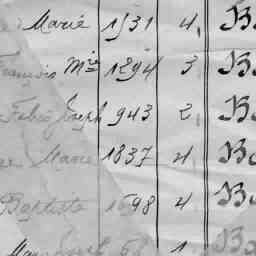 Marie 1931 4, B
François Mie 1894 3 B
Felix Joseph 943 2, B
Marie 1837 4, Bo
Baptiste 1698 4 Bo
68 1 Bo